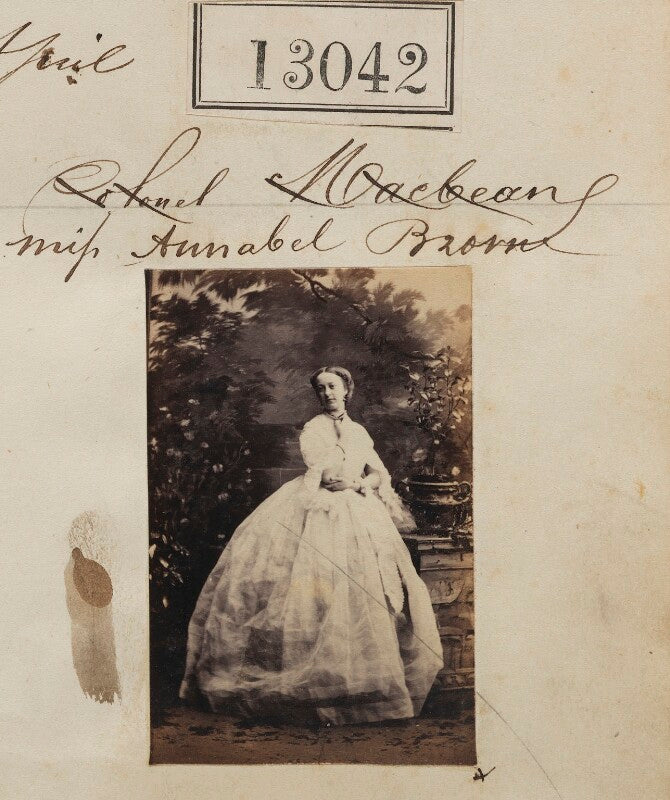 April
13042
Colonel Macbean
Miss Annabel Brown